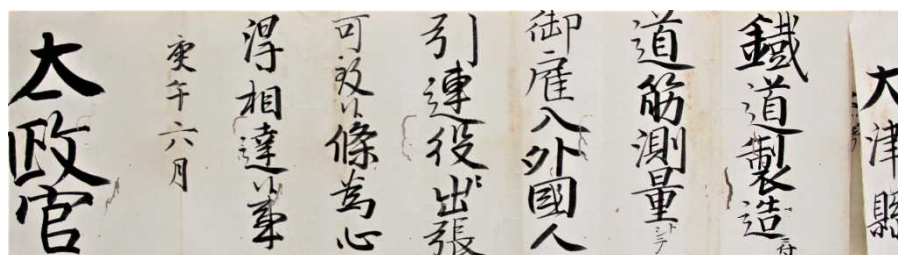 大津縣
鐵道製造ニ付
道筋測量トシテ
御雇入外國人
引連役ニ出張
可致候條為心
得相達候事
庚午六月
太政官